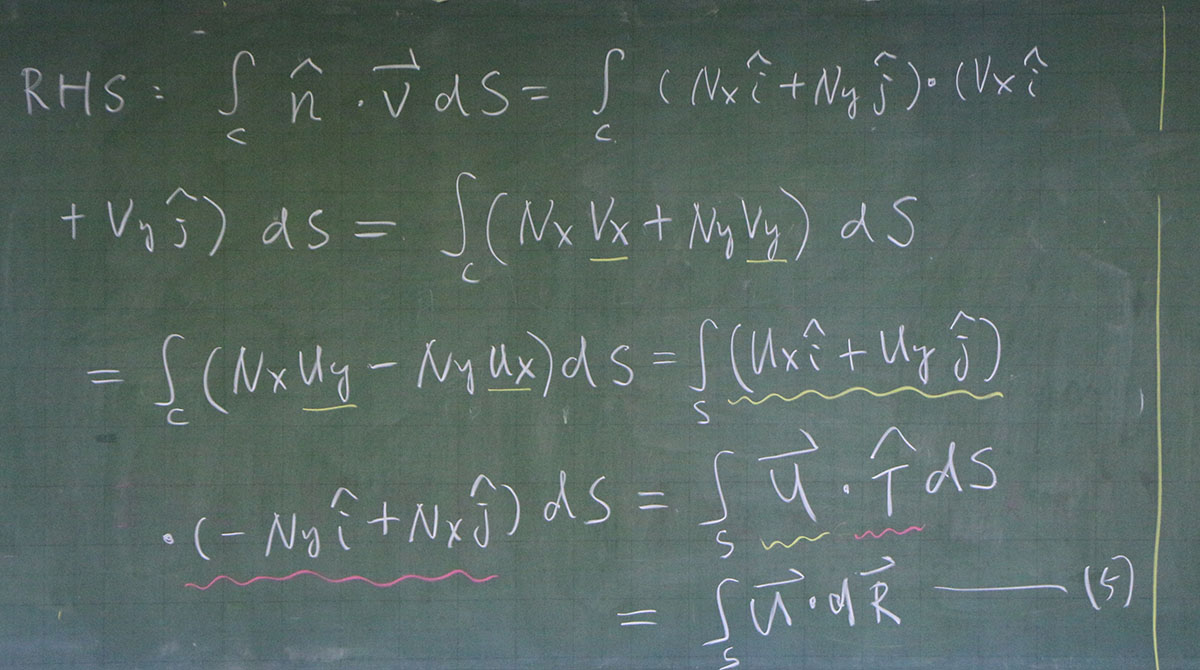 RHS: ∫_C n̂ · V⃗ dS = ∫_C (Nx î + Ny ĵ) · (Vx î
+ Vy ĵ) dS = ∫_C (Nx Vx + Ny Vy) dS
= ∫_C (Nx Uy − Ny Ux) dS = ∫_S (Ux î + Uy ĵ)
· (− Ny î + Nx ĵ) dS = ∫_S U⃗ · T̂ dS
= ∫_S U⃗ · dR⃗ —— (5)